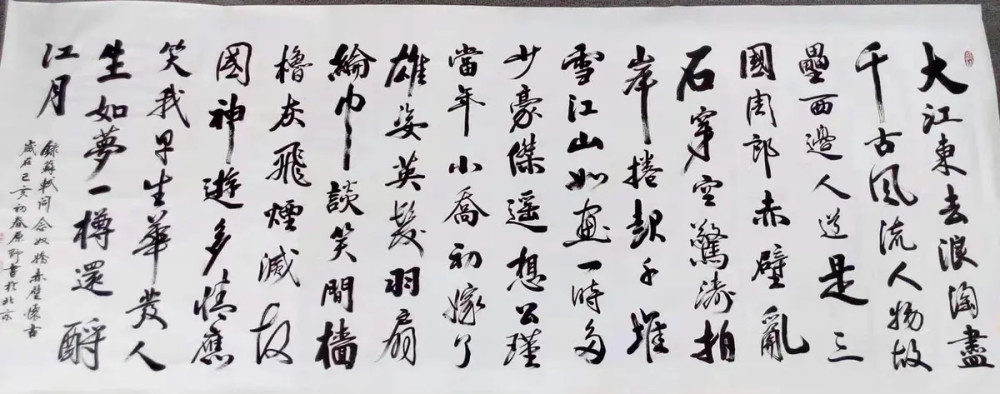 大江東去浪淘盡
千古風流人物故
壘西邊人道是三
國周郎赤壁亂
石穿空驚濤拍
岸捲起千堆
雪江山如畫一時多
少豪傑遥想公瑾
當年小喬初嫁了
雄姿英髮羽扇
綸巾談笑間檣
櫓灰飛煙滅故
國神遊多情應
笑我早生華發人
生如夢一樽還酹
江月
錄蘇軾詞念奴嬌赤壁懷古
歲在己亥初春原野書於北京